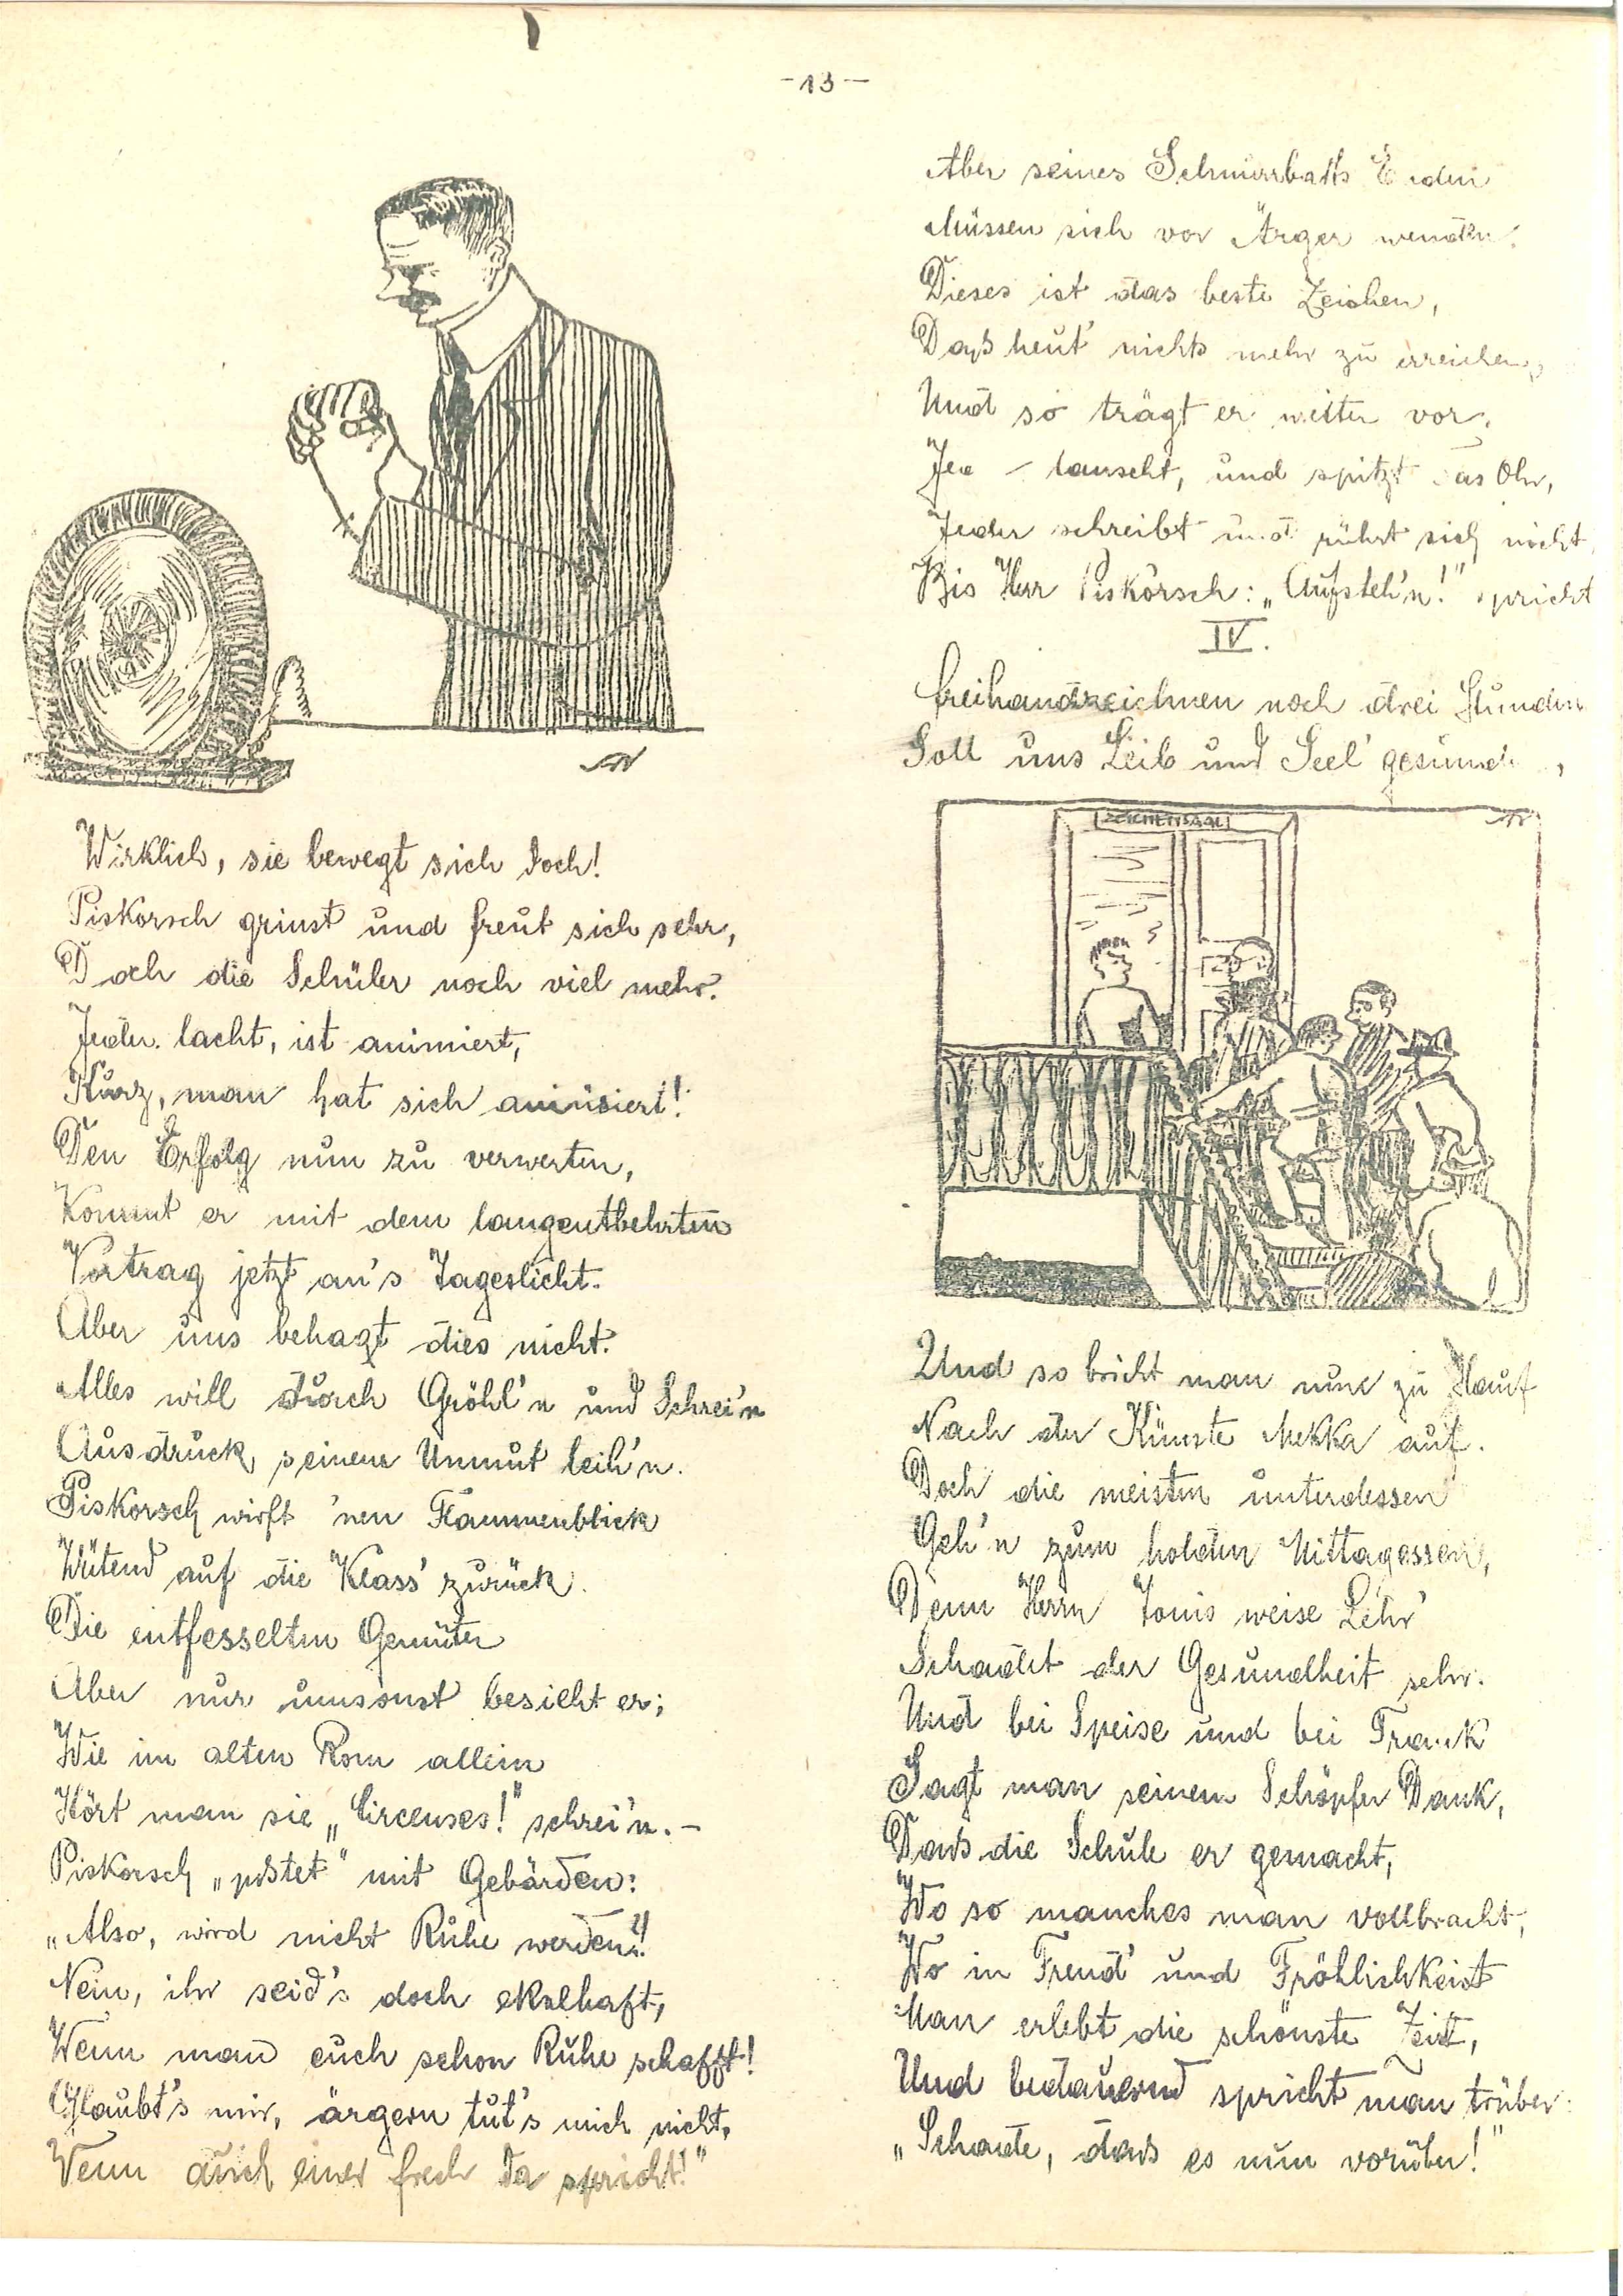 -13-
Wirklich, sie bewegt sich doch!
Piskorsch grinst und freut sich sehr,
Doch die Schüler noch viel mehr.
Jeder lacht, ist animiert,
Kurz, man hat sich amüsiert!
Den Erfolg nun zu verwerten,
Kommt er mit dem langentbehrten
Vortrag jetzt an's Tageslicht.
Aber uns behagt dies nicht.
Alles will durch Gröhl'n und Schrei'n
Ausdruck seinem Unmut leih'n.
Piskorsch wirft 'nen Flammenblick
Wütend auf die Klass' zurück.
Die entfesselten Gemüter
Aber nur umsonst besieht er;
Wie im alten Rom allein
Hört man sie „Circenses!" schrei'n. –
Piskorsch „pstet" mit Gebärden:
„Also, wird nicht Ruhe werden?!
Nein, ihr seid's doch ekelhaft,
Wenn man euch schon Ruhe schafft!
Glaubt's mir, ärgern tut's mich nicht,
Wenn auch einer frech da spricht!"
Aber seines Schnurrbarts Enden
Müssen sich vor Ärger wenden.
Dieses ist das beste Zeichen,
Daß heut' nichts mehr zu erreichen,
Und so trägt er weiter vor.
Je lauscht, und spitzt das Ohr,
Jeder schreibt und rührt sich nicht,
Bis Herr Piskorsch: „Aufsteh'n!" spricht
IV.
Freihandzeichnen noch drei Stunden
Soll uns Leib und Seel' gesunden,
ZEICHENSAAL
Und so bricht man nun zu Hauf
Nach der Künste Mekka auf.
Doch die meisten unterdessen
Geh'n zum holden Mittagessen,
Denn Herrn Tonis weise Lehr'
Schadet der Gesundheit sehr.
Und bei Speise und bei Trank
Sagt man seinem Schöpfer Dank,
Dass die Schule er gemacht,
Wo so manches man vollbracht,
Wo in Freud' und Fröhlichkeit
Man erlebt die schönste Zeit,
Und bedauernd spricht man trüber:
„Schade, dass es nun vorüber!"